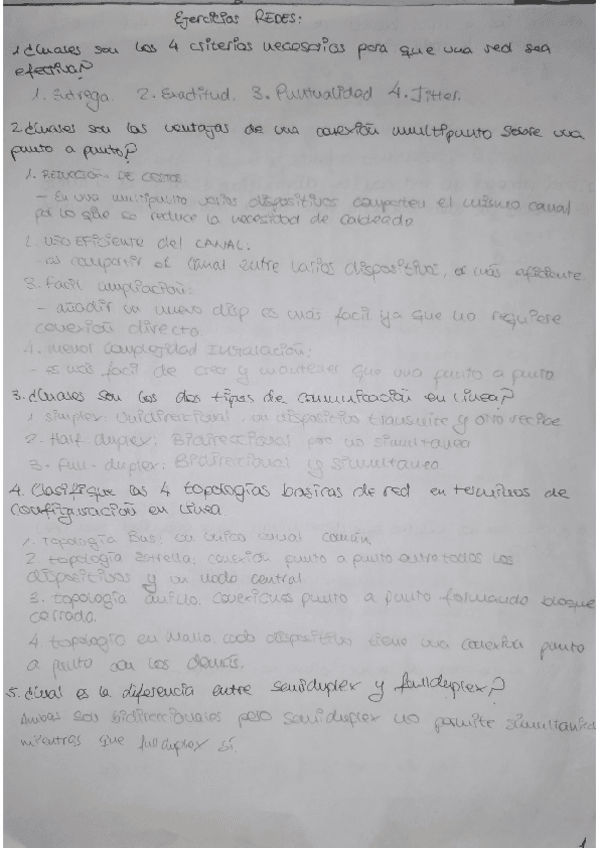 Ejercicios REDES:
1. ¿Cuáles son los 4 criterios necesarios para que una red sea
efectiva?
1. Entrega. 2. Exactitud. 3. Puntualidad 4. Jitter.
2. ¿Cuáles son las ventajas de una conexión multipunto sobre una
punto a punto?
1. REDUCCIÓN DE COSTOS
- En una multipunto varios dispositivos comparten el mismo canal
por lo que se reduce la necesidad de cableado
2. USO EFICIENTE del CANAL:
- al compartir el canal entre varios dispositivos, es más eficiente
3. Facil ampliación:
- añadir un nuevo disp es más facil ya que no requiere
conexión directa
4. Menor complejidad Instalación:
- es más facil de crear y mantener que una punto a punto
3. ¿Cuáles son los dos tipos de comunicación en línea?
1 simplex: Unidireccional. un dispositivo transmite y otro recibe
2. Half duplex: Bidireccional pero no simultanea
3. Full-duplex: Bidireccional y simultanea.
4. Clasifique las 4 topologías basicas de red en términos de
configuración en línea
1. Topología Bus: un unico canal común
2 topología Estrella: conexión punto a punto entre todos los
dispositivos y un nodo central
3. topología anillo: conexiones punto a punto formando bloque
cerrado.
4 topología en Malla. cada dispositivo tiene una conexión punto
a punto con los demás.
5. ¿Cual es la diferencia entre semiduplex y fullduplex?
Ambas son bidireccionales pero semiduplex no permite simultanied
mientras que fullduplex sí.
1